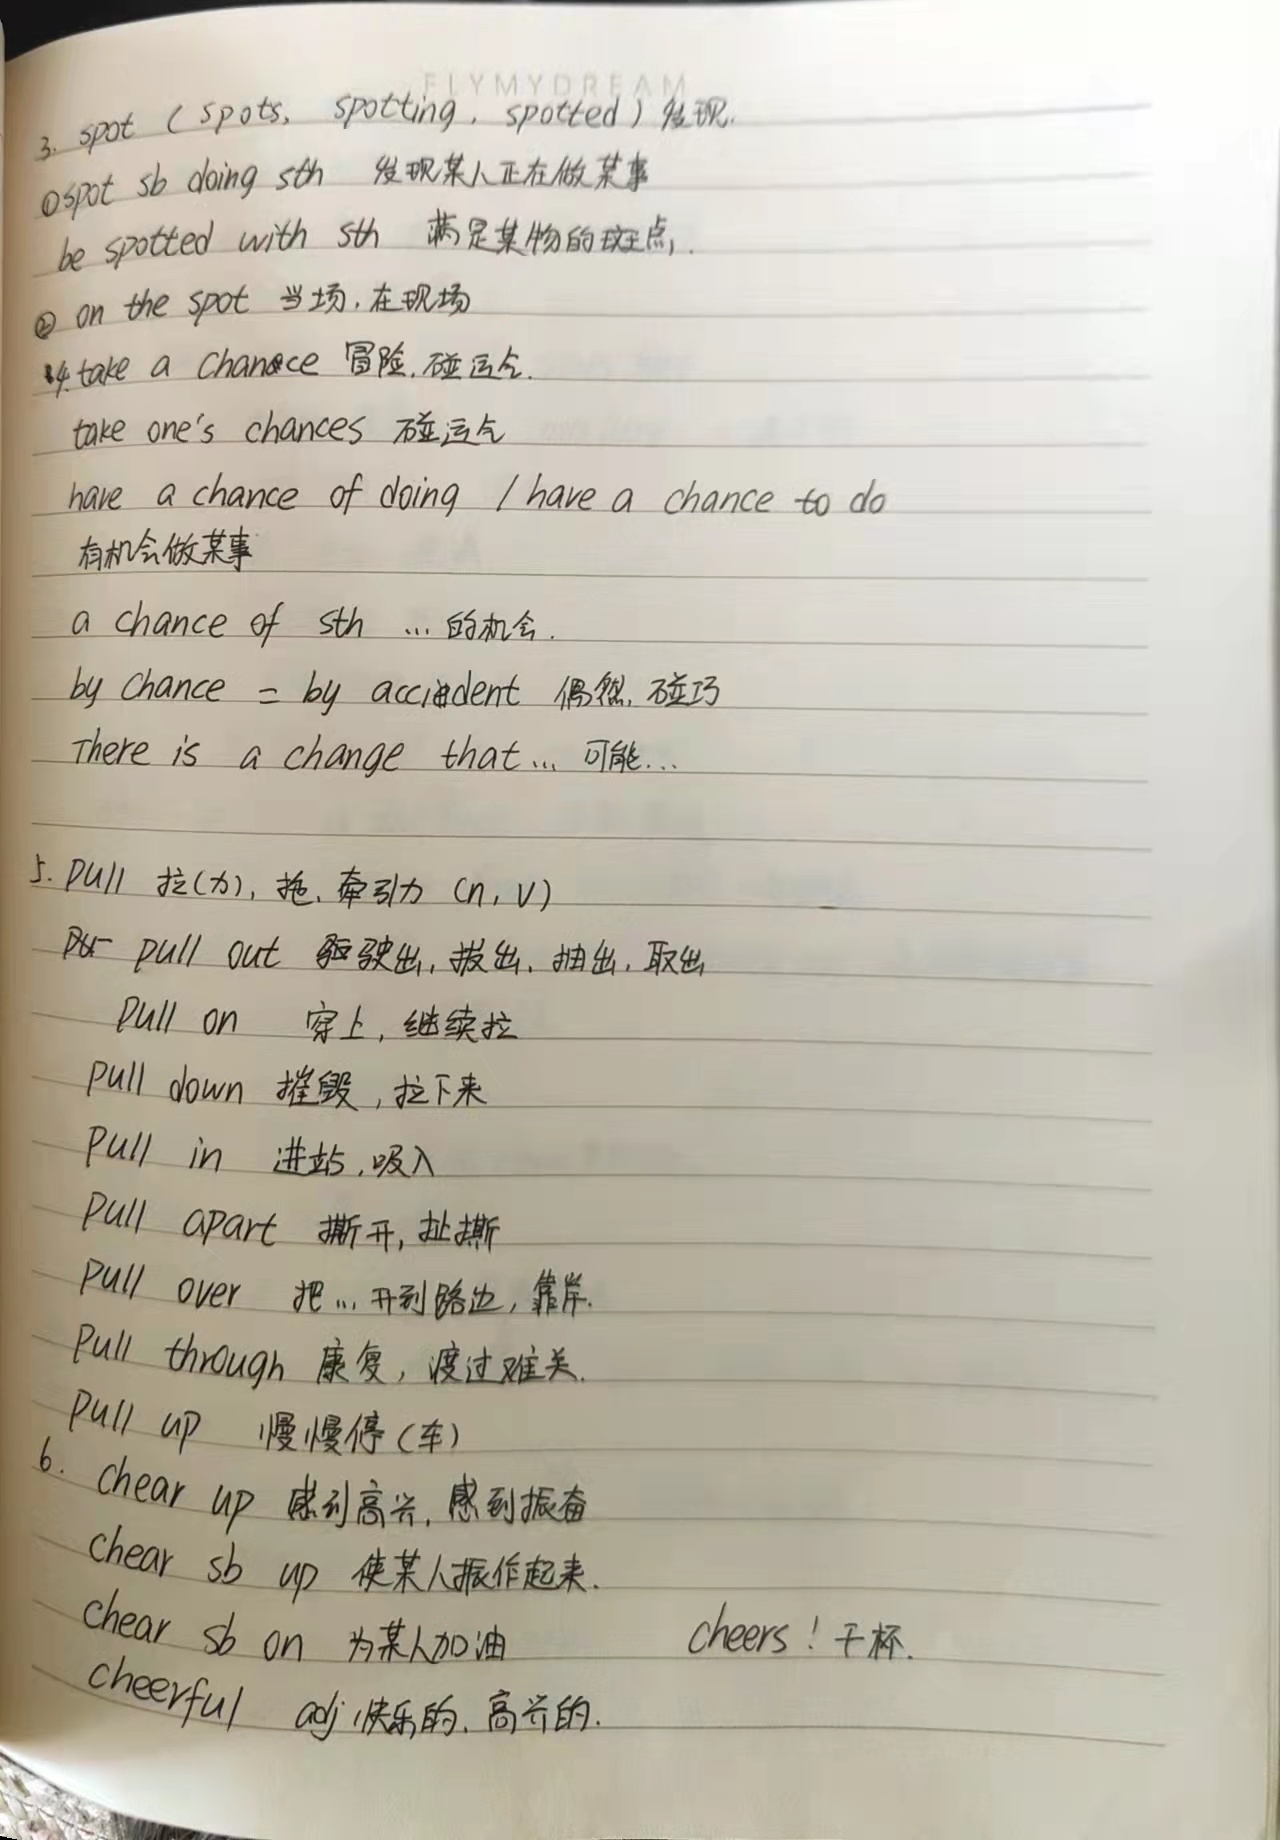 FLYMYDREAM
3. spot (spots, spotting, spotted) 发现.
①spot sb doing sth 发现某人正在做某事
be spotted with sth 满是某物的斑点.
② on the spot 当场, 在现场
4. take a chance 冒险, 碰运气.
take one's chances 碰运气
have a chance of doing / have a chance to do
有机会做某事
a chance of sth ... 的机会.
by chance = by accident 偶然, 碰巧
There is a change that ... 可能...
5. pull 拉(力), 拖, 牵引力 (n, v)
pull out 驱驶出, 拔出, 抽出, 取出
pull on 穿上, 继续拉
pull down 摧毁, 拉下来
pull in 进站, 吸入
pull apart 撕开, 扯撕
pull over 把... 开到路边, 靠岸.
pull through 康复, 渡过难关.
pull up 慢慢停(车)
6. chear up 感到高兴, 感到振奋
chear sb up 使某人振作起来.
chear sb on 为某人加油 cheers! 干杯.
cheerful adj 快乐的, 高兴的.